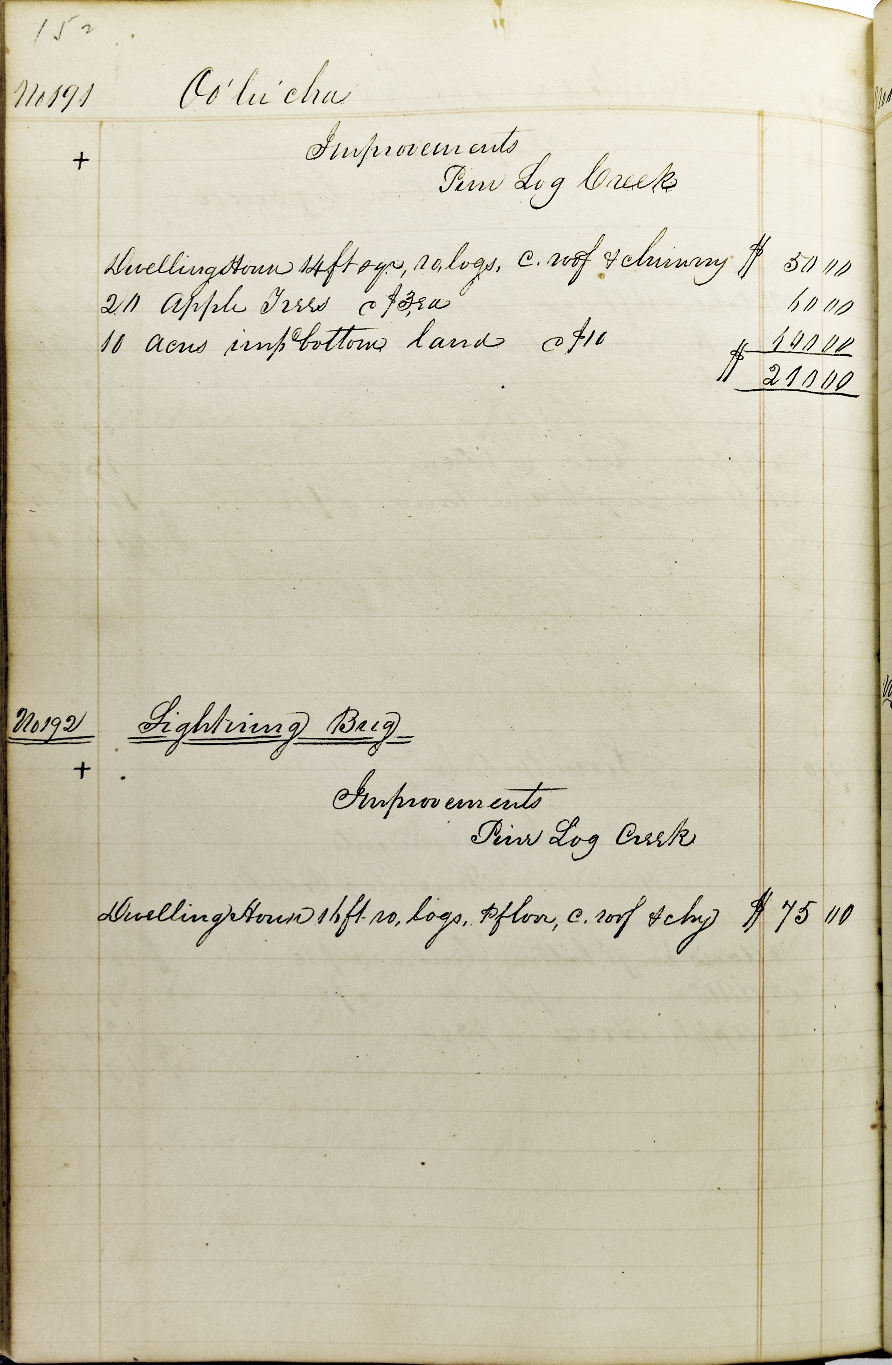 152
No 191 Oo'lu'cha
+ Improvements
Pine Log Creek
Dwelling House 14 ft sqr, ro, logs, c. roof & chimney $ 50 00
20 Apple Trees @ $3, ea 60 00
10 acres impd bottom land @ $10 100 00
$ 210 00
No 192 Lightning Bug
+ Improvements
Pine Log Creek
Dwelling House 16 ft ro, logs, p floor, c. roof & chy $ 75 00